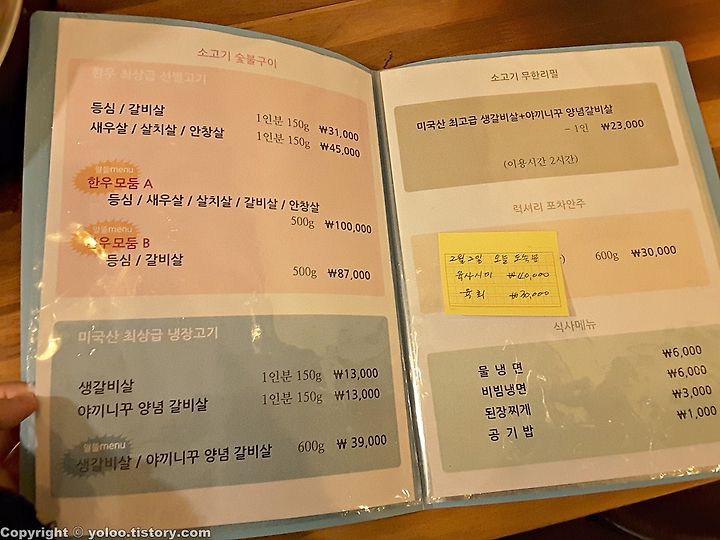 소고기 숯불구이
한우 최상급 선별고기
등심 / 갈비살 1인분 150g ₩31,000
새우살 / 살치살 / 안창살 1인분 150g ₩45,000
알뜰menu
한우모둠 A
등심 / 새우살 / 살치살 / 갈비살 / 안창살
500g ₩100,000
알뜰menu
한우모둠 B
등심 / 갈비살
500g ₩87,000
미국산 최상급 냉장고기
생갈비살 1인분 150g ₩13,000
야끼니꾸 양념 갈비살 1인분 150g ₩13,000
알뜰menu
생갈비살 / 야끼니꾸 양념 갈비살 600g ₩ 39,000
소고기 무한리필
미국산 최고급 생갈비살+야끼니꾸 양념갈비살
– 1인 ₩23,000
(이용시간 2시간)
럭셔리 포차안주
) 600g ₩30,000
2월 2일 오늘 도축분
육사시미 ₩40,000
육회 ₩30,000
식사메뉴
물 냉 면 ₩6,000
비빔냉면 ₩6,000
된장찌개 ₩3,000
공 기 밥 ₩1,000
Copyright © yoloo.tistory.com